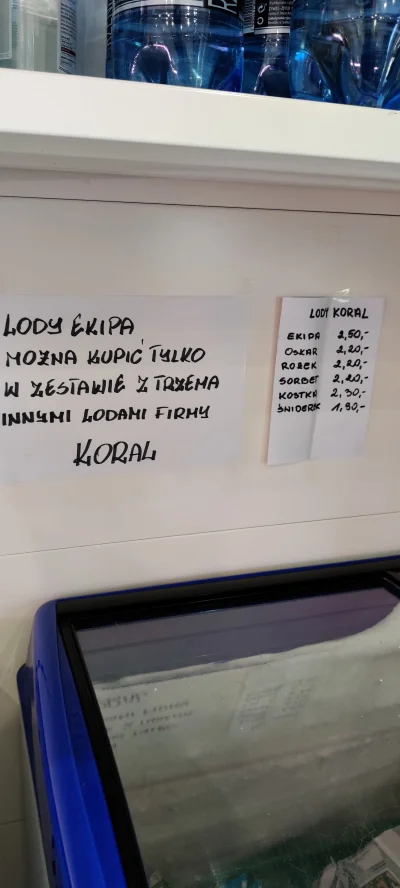 LODY EKIPA
MOŻNA KUPIĆ TYLKO
W ZESTAWIE Z TRZEMA
INNYMI LODAMI FIRMY
KORAL
LODY KORAL
EKIPA 2,50,-
OSKAR 2,20,-
ROŻEK 2,20,-
SORBET 2,20,-
KOSTKA 2,30,-
ŚNIDEREK 1,90,-